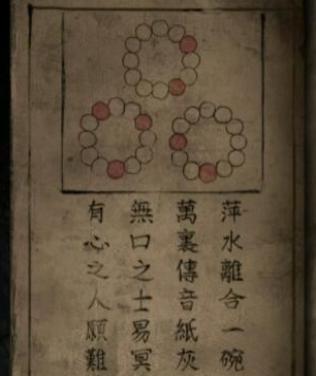 萍水離合一碗
萬裏傳音紙灰
無口之士易冥
有心之人願難